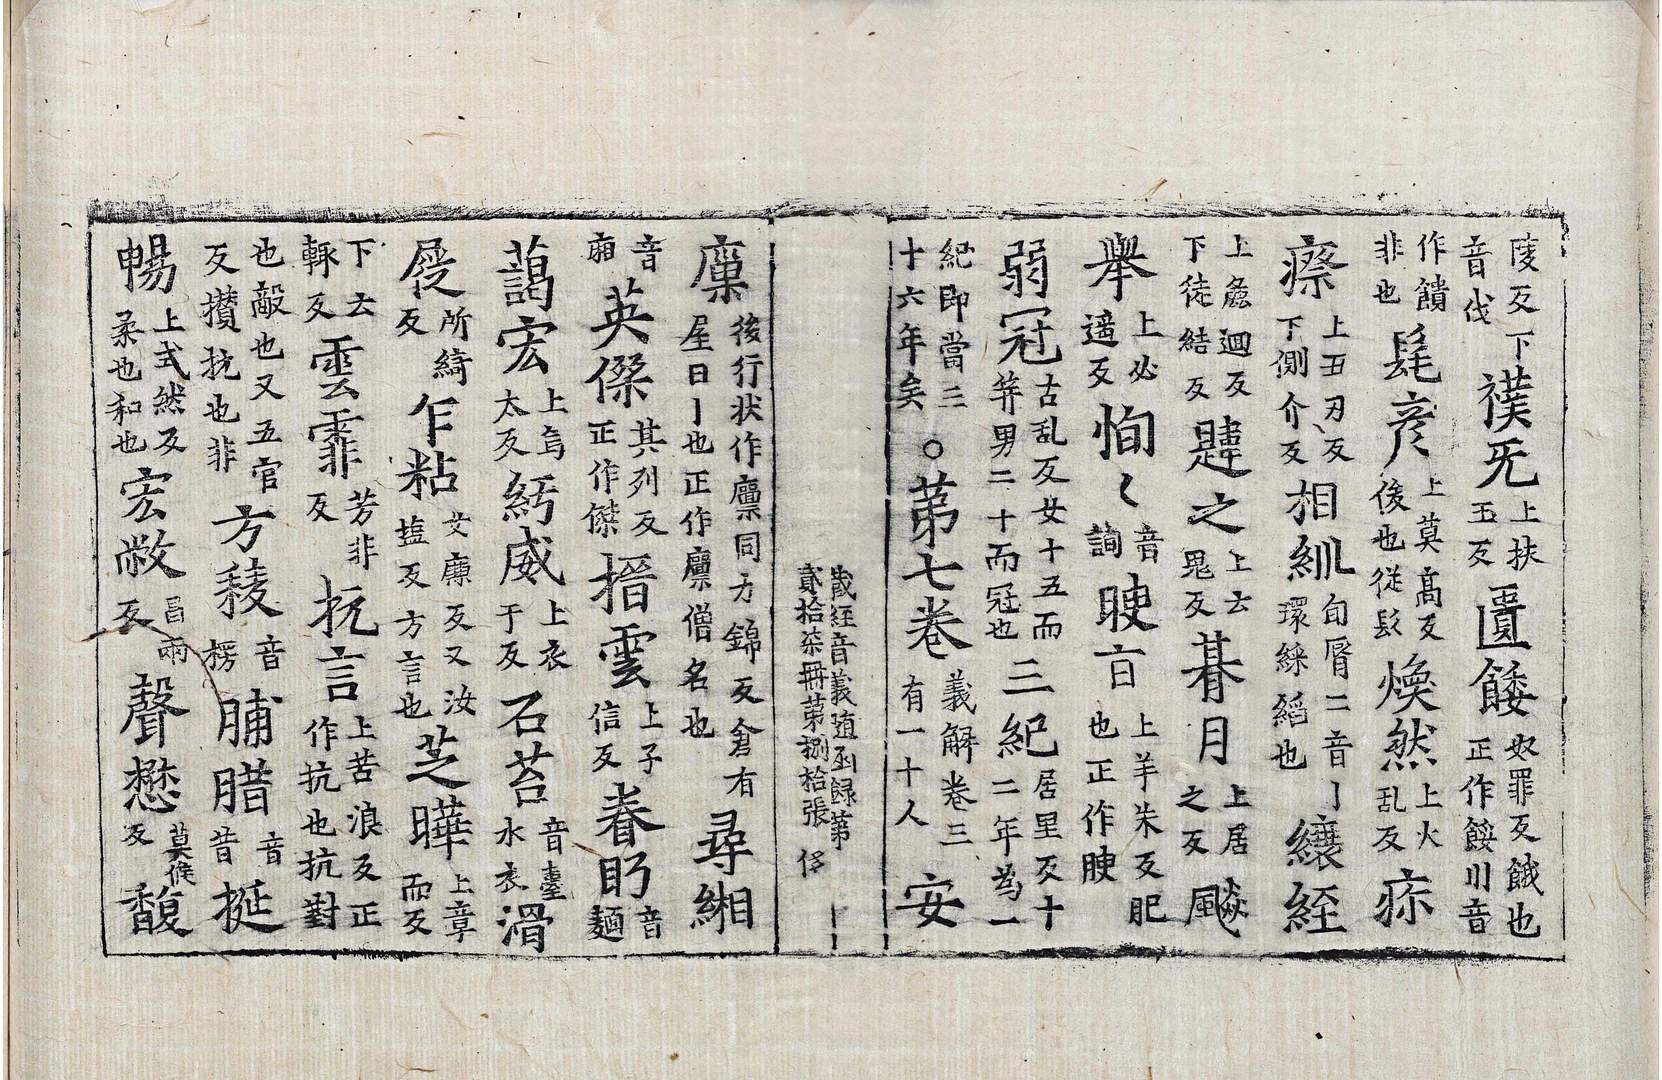 陵反下音伐襆旡上扶玉反匱餧奴罪反餓也正作餒川音
作饋非也髦彦上莫高反俊也從髟煥然上火乱反疢
瘵上丑刃反下側介反相紃旬脣二音丨環綵縚也纕絰
上麁迴反下徒結反韙之上云鬼反朞月上居之反飇
舉上必遥反恂〻音詢腴㐭上羊朱反肥也正作腴
弱冠古乱反女十五而笄男二十而冠也三紀居里反十二年為一
紀即當三十六年矣○第七卷義解卷三有一十人安
藏經音義随函録第貳拾柒冊第捌拾張侈
廩後行状作廪同力錦反倉有屋曰丨也正作廪僧名也尋緗
音廂英傑其列反正作傑搢雲上子信反眷眄音麺
藹宏上烏太反紆威上衣于反石苔音臺水衣滑
屐所綺反乍粘女廉反又汝塩反方言也芝曄上章而反
下云輒反雲霏芳非反抗言上苦浪反正作抗也抗對
也敵也又五官反攢抗也非方稜音楞脯腊音昔挺
暢上式然反柔也和也宏敞昌兩反聲懋莫候反馥